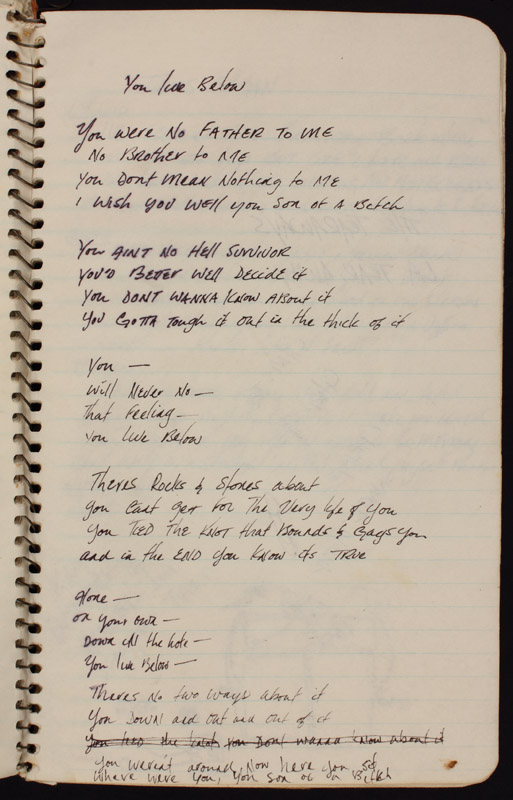 You live Below
You were No FATHER To ME
No Brother to ME
You Dont mean Nothing to ME
I WISH YOU WELL you Son of A Betch
You AINT NO Hell SURVIVOR
YOU'D BETER Well DECIDE it
You DONT WANNA Know About it
You GOTTA Tough it out in the thick of it
You —
Will Never No —
That Feeling —
You live Below
Theres Rocks & Stones about
you cant get for The Very life of You
You TIED THE KNOT that Bounds & Gags You
and in the END You Know its TRUE
Alone —
on your own —
Down in the hole —
You live Below —
Theres No two ways about it
You DOWN and Out and Out of it
you tied the knots you Dont wanna know about it
you weren't around, Now here you
where were you, you son of a Bitch